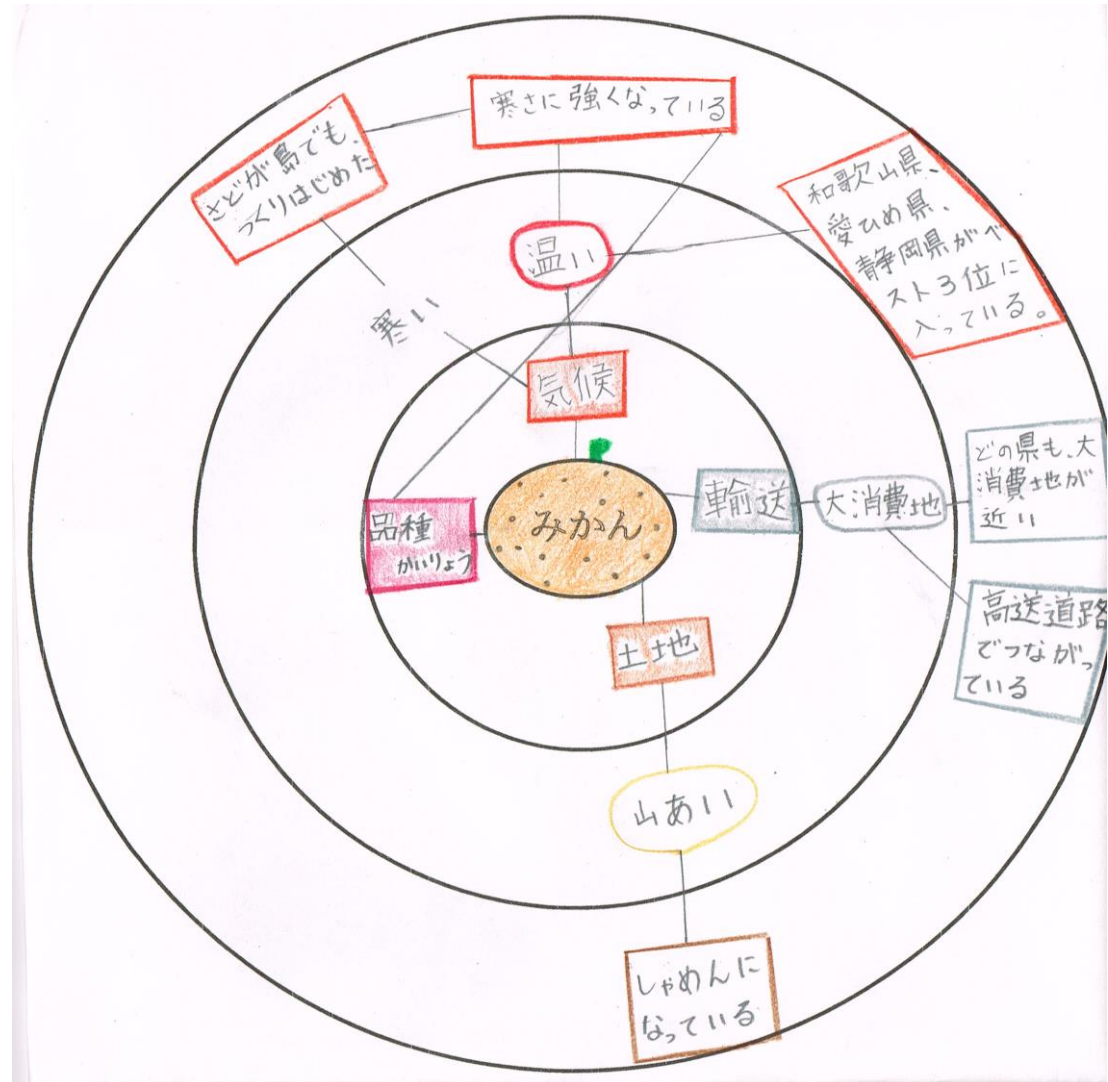 寒さに強くなっている
さどが島でも、
つくりはじめた
和歌山県、
愛ひめ県、
静岡県がベ
スト3位に
入っている。
温い
寒い
気候
みかん
品種
がいりょう
輸送
大消費地
どの県も、大
消費地が
近い
高送道路
でつながっ
ている
土地
山あい
しゃめんに
なっている